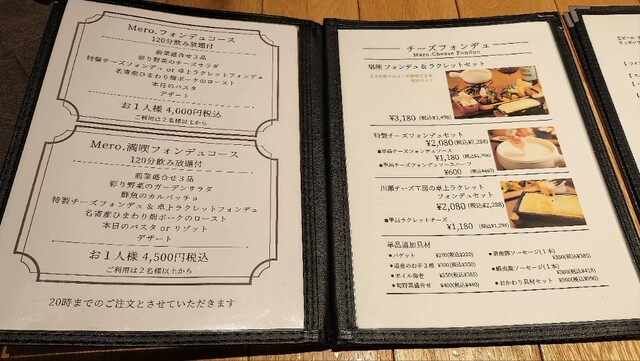 Mero.フォンデュコース
120分飲み放題付
前菜盛合せ3品
彩り野菜のチーズサラダ
特製チーズフォンデュ or 卓上ラクレットフォンデュ
名寄産ひまわり畑ポークのロースト
本日のパスタ
デザート
お1人様 4,000円税込
ご利用は2名様以上から
Mero.満喫フォンデュコース
120分飲み放題付
前菜盛合せ3品
彩り野菜のガーデンサラダ
鮮魚のカルパッチョ
特製チーズフォンデュ & 卓上ラクレットフォンデュ
名寄産ひまわり畑ポークのロースト
本日のパスタ or リゾット
デザート
お1人様 4,500円税込
ご利用は2名様以上から
20時までのご注文とさせていただきます
チーズフォンデュ
Mero.Cheese Fondue
フォンデュ&ラクレットセット
¥3,180 (税込¥3,498)
特製チーズフォンデュセット
¥2,080 (税込¥2,288)
■単品チーズフォンデュソース
¥1,180
■単品チーズフォンデュソースハーフ
¥600 (税込¥660)
チーズ工房の卓上ラクレット
フォンデュセット
¥2,080 (税込¥2,288)
■単品ラクレットチーズ
¥1,180 (税込¥1,298)
単品追加具材
●バゲット ¥200(税込¥220)
●道産のお芋3種 ¥300(税込¥330)
●ボイル海老 ¥350(税込¥385)
●旬野菜盛合せ ¥400(税込¥440)
ソーセージ(1本)
¥350(税込¥385)
ソーセージ(1本)
¥380(税込¥418)
●おかわり具材セット ¥900(税込¥990)